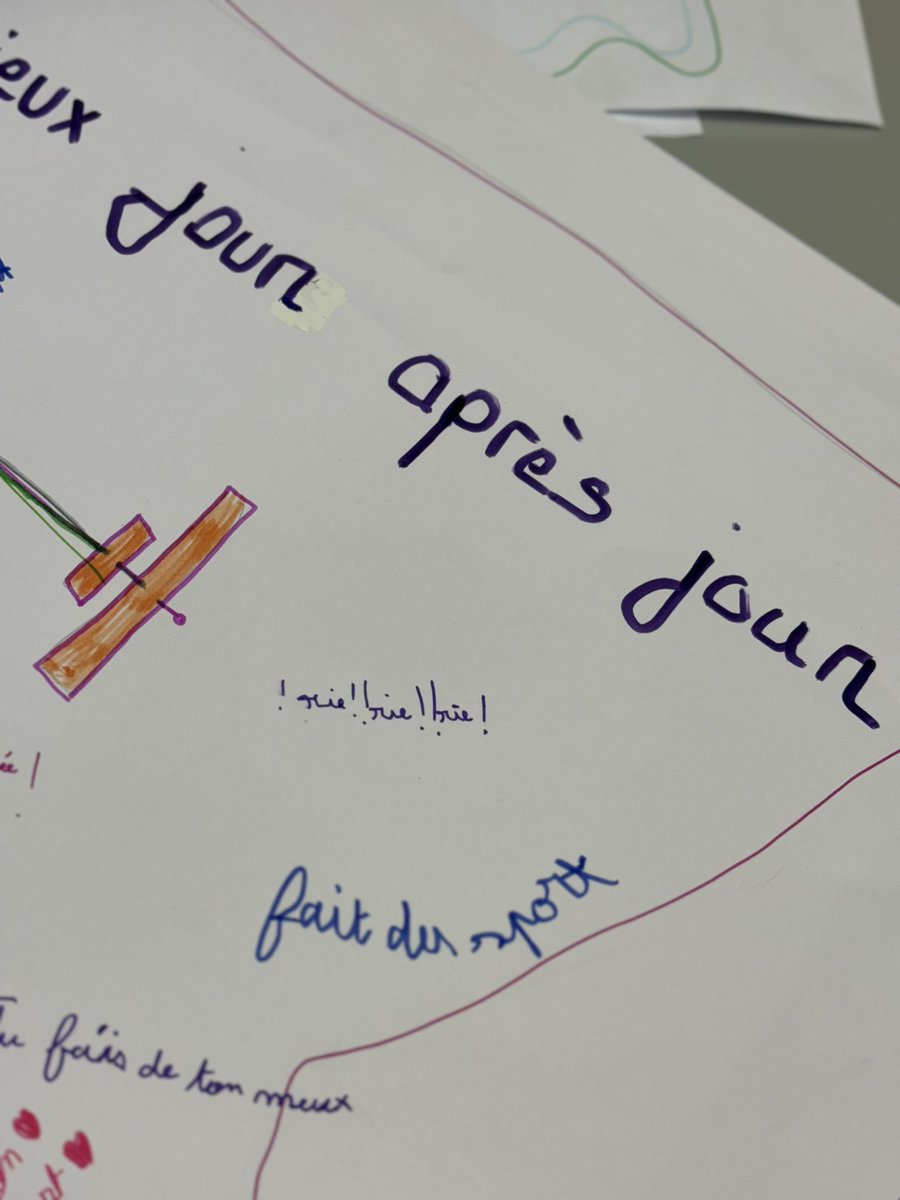 jour après jour
! rie ! ! rie ! ! rie !
fait du sport
Tu fais de ton meux